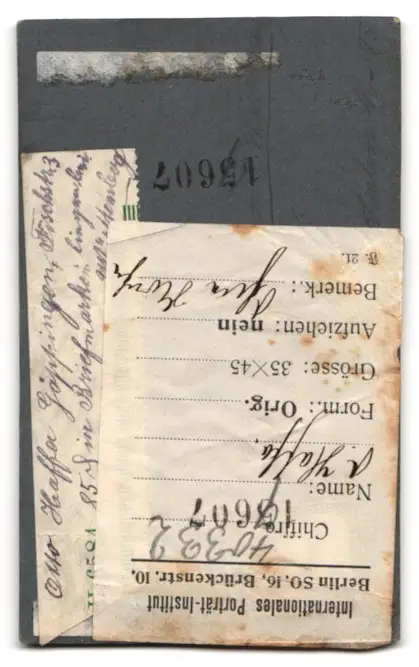 Internationales Porträt-Institut
Berlin SO. 16, Brückenstr. 10.
40332
Chiffre 13607
Name: O. Haffa
Form.: Orig.
Grösse: 35×45
Aufziehen: nein
Bemerk.:
F. 21.
13607
Otto Haffa Göppingen,
85 in Briefmarken